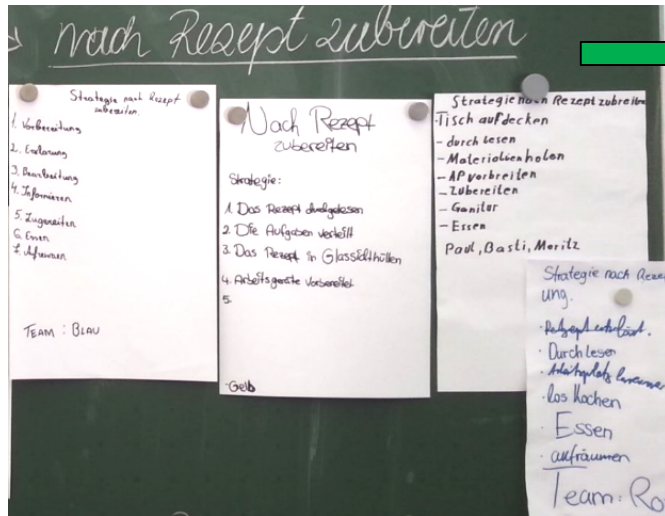 nach Rezept zubereiten
Strategie nach Rezept
zubereiten.
1. Vorbereitung
2. Erklärung
3. Bearbeitung
4. Informieren
6. Essen
TEAM : BLAU
Nach Rezept
zubereiten
Strategie:
1. Das Rezept
2. Die Aufgaben verteilt
3. Das Rezept in
4. Arbeitsgeräte Vorbereitet
5.
Gelb
Strategie nach Rezept zubreiten
Tisch aufdecken
- durch lesen
- Materialien holen
- AP vorbreiten
- Zubereiten
- Ganitur
- Essen
Paul, Basti, Moritz
Strategie nach
ung.
· Durch lesen
· los Kochen
· Essen
· aufräumen
Team: Ro